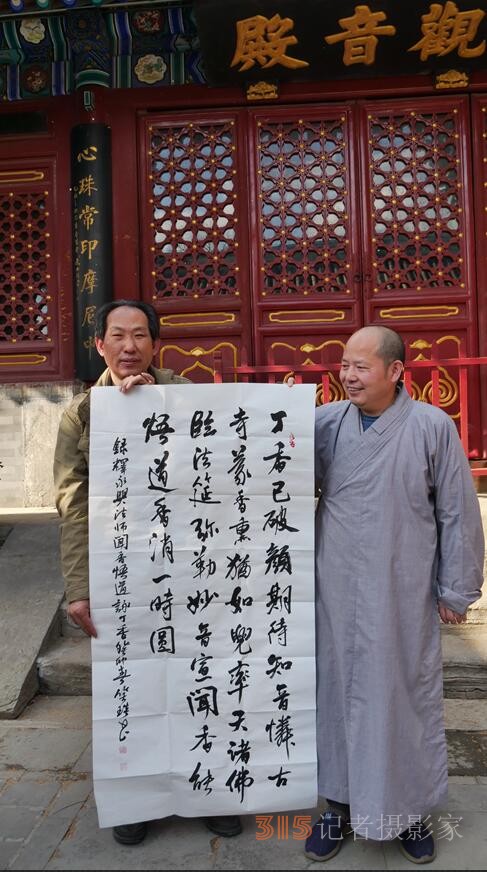 觀音殿
心珠常印摩尼
丁香已破顏期待知音憐古
寺蒙香熏猶如兜率天諸佛
臨法筵弥勒妙音宣聞香能
悟道香消一時圓
錄釋永興法師聞香悟道詠丁香
315记者摄影家